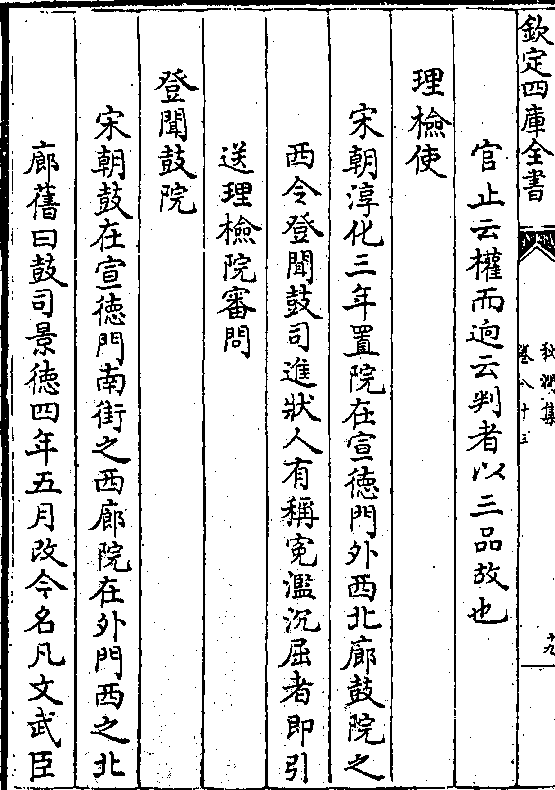 欽定四庫全書
秋澗集
卷八十三
十九
官止云權而逈云判者以三品故也
理檢使
宋朝淳化三年置院在宣徳門外西北廊鼓院之
西令登聞鼓司進狀人有稱寃濫沉屈者即引
送理檢院審問
登聞鼓院
宋朝鼓在宣徳門南街之西廊院在外門西之北
廊舊曰鼓司景徳四年五月改今名凡文武臣